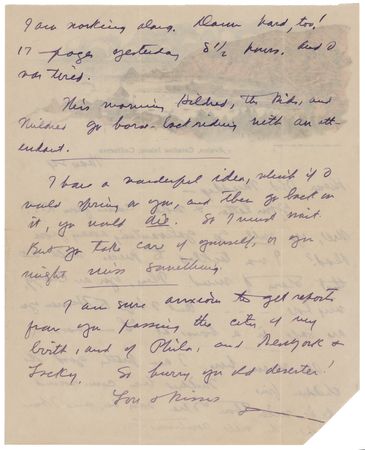 I am working along. Damn hard, too!
17 pages yesterday 8 1/2 hours. And I
was tired.
This morning Hildred, the Kids, and
Mildred go horse-back riding with an at-
tendant.
I have a wonderful idea, which if I
would spring on you, and then go back on
it, you would die. So I must wait.
But you take care of yourself, or you
might miss something.
I am sure anxious to get reports
from you passing the city of my
birth, and of Phila, and New York &
So hurry you old deserter!
Love & Kisses